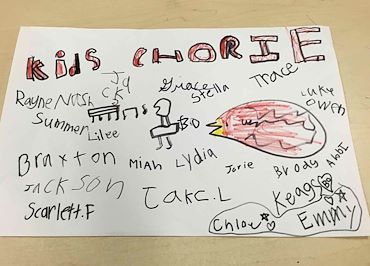 KidS CHORIE
Jack
Grace
Stella
Trace
Luke
Owen
Rayne
Summer
Lilee
Bo
Braxton
Miah
Lydia
Jorie
Brody
Abbi
JACKSON
Jake.L
Keagan
Scarlett.F
Chloe
Emmy